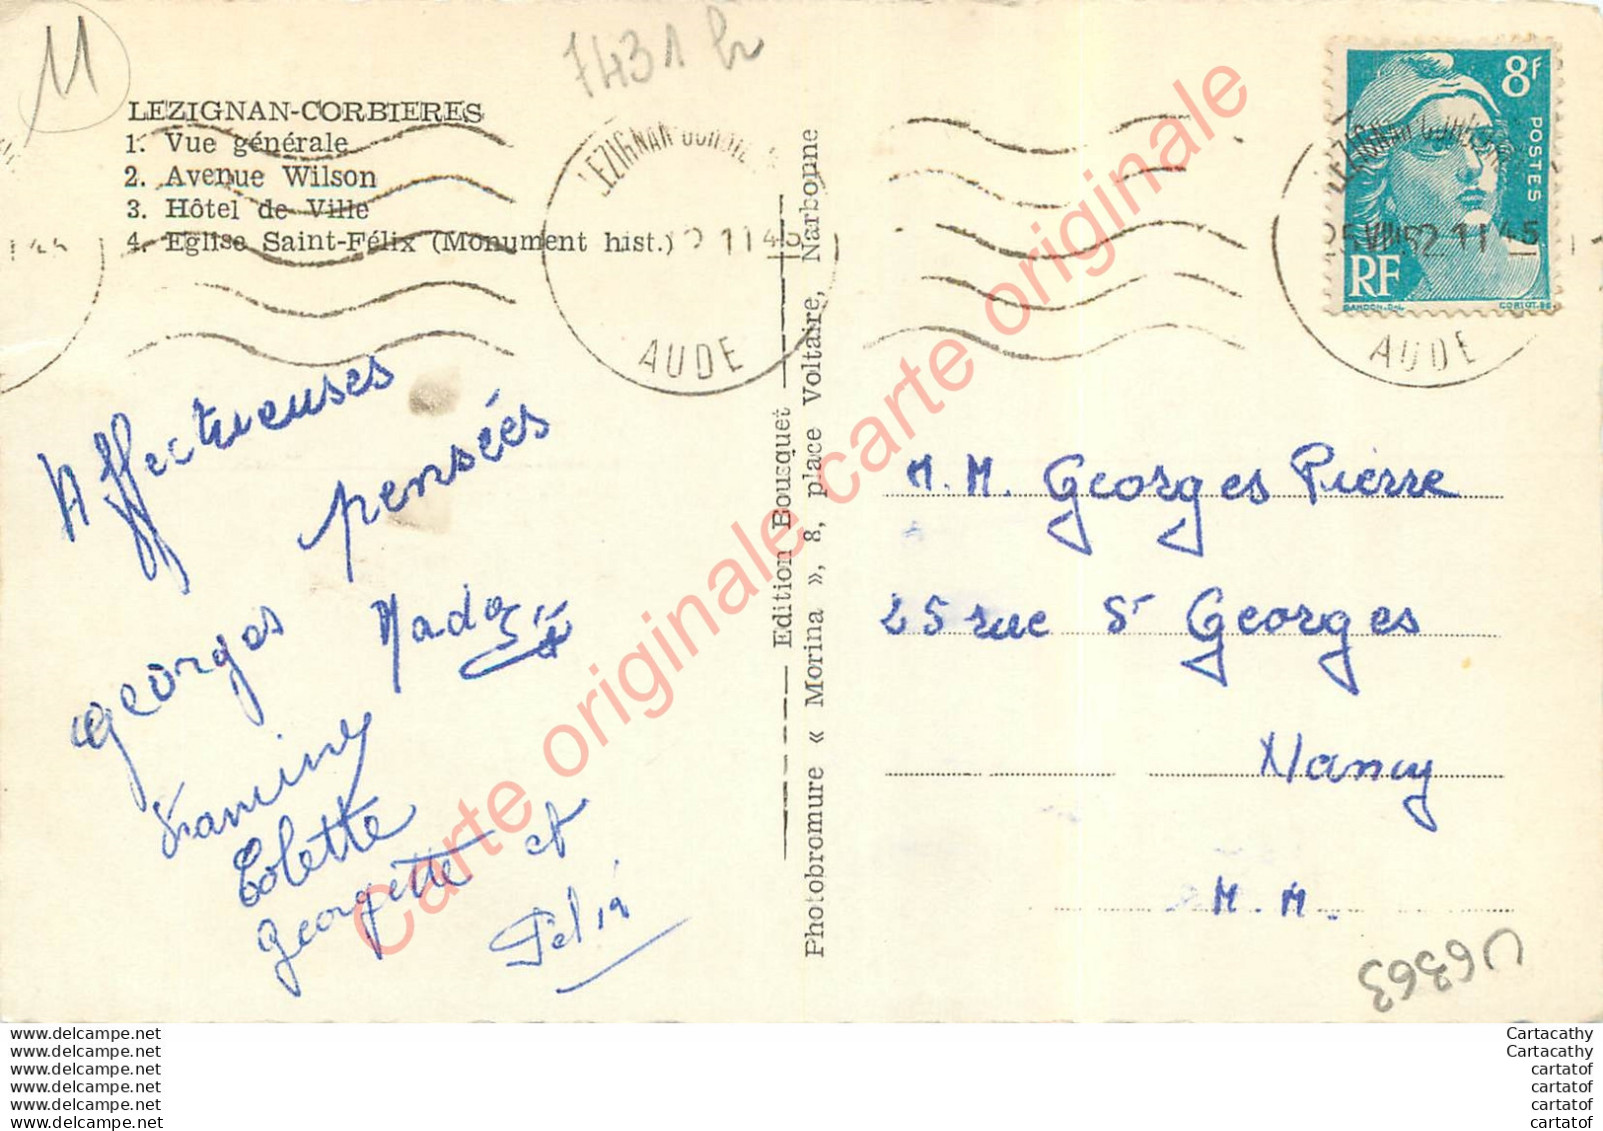 11
7431 h
LEZIGNAN-CORBIERES
1. Vue générale
2. Avenue Wilson
3. Hôtel de Ville
4. Eglise Saint-Félix (Monument hist.)
LEZIGNAN-CORBIE
2 11 45
AUDE
8F
POSTES
RF
LEZIGNAN-CORBIERES
25 VII 52 11 45
AUDE
Affectueuses
pensées
georges Mado
Colette
georgette et
Edition Bousquet
Photobromure « Morina », 8, place Voltaire, Narbonne
M. M. Georges Pierre
25 rue St Georges
Nancy
M. M.
U6363
Carte originale carte originale
www.delcampe.net
www.delcampe.net
www.delcampe.net
www.delcampe.net
www.delcampe.net
www.delcampe.net
Cartacathy
Cartacathy
cartatof
cartatof
cartatof
cartatof